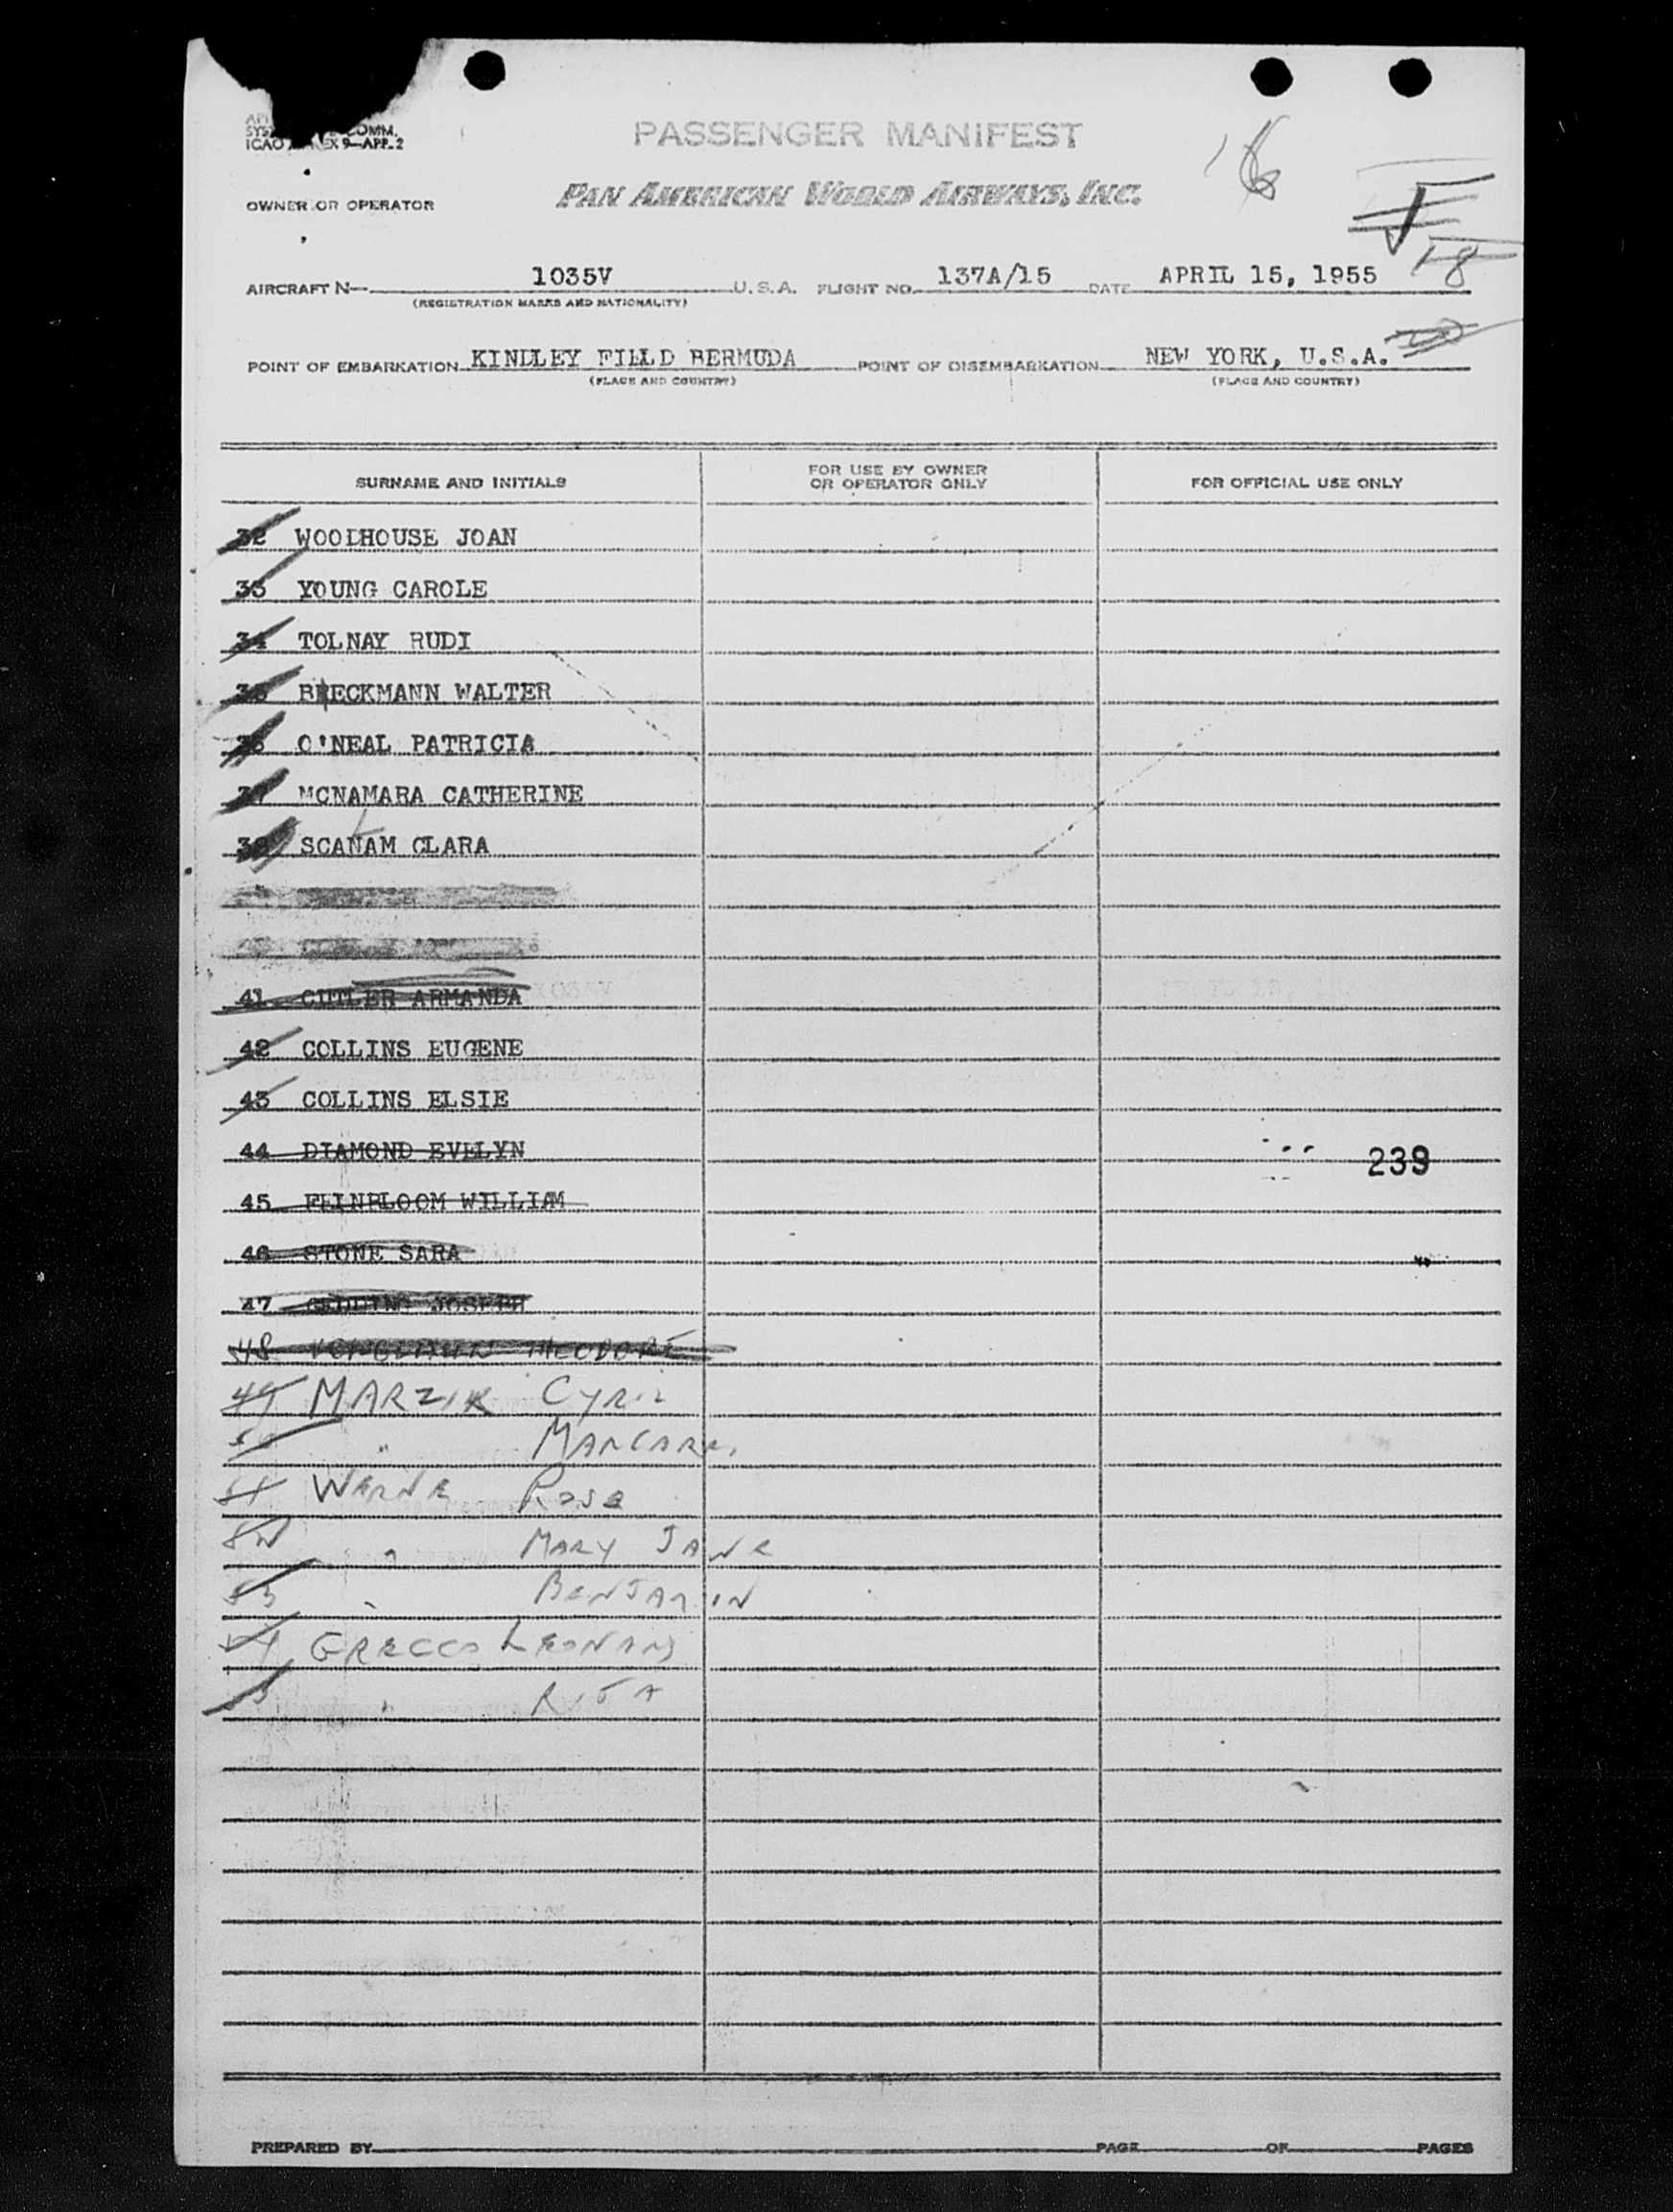 COMM.
ICAO EX 9—APP. 2
PASSENGER MANIFEST
16
PAN AMERICAN WORLD AIRWAYS, INC.
OWNER OR OPERATOR
18
AIRCRAFT N— 1035V U.S.A. FLIGHT NO. 137A/15 DATE APRIL 15, 1955
(REGISTRATION MARKS AND NATIONALITY)
POINT OF EMBARKATION KINDLEY FIELD BERMUDA POINT OF DISEMBARKATION NEW YORK, U.S.A.
(PLACE AND COUNTRY) (PLACE AND COUNTRY)
SURNAME AND INITIALS FOR USE BY OWNER OR OPERATOR ONLY FOR OFFICIAL USE ONLY
32 WOODHOUSE JOAN
33 YOUNG CAROLE
34 TOLNAY RUDI
35 BRECKMANN WALTER
36 O'NEAL PATRICIA
37 MCNAMARA CATHERINE
38 SCANAM CLARA
41 CUTLER ARMANDA
42 COLLINS EUGENE
43 COLLINS ELSIE
44 DIAMOND EVELYN 239
45 FEINBLOOM WILLIAM
46 STONE SARA
47 JOSEPH
48 THEODORE
49 MARZIK CYRIL
50 "
51 WERNR ROSE
52 " MARY JANE
53 " BENJAMIN
54 GRECCO LEONARD
55 " RITA
PREPARED BY PAGE OF PAGES